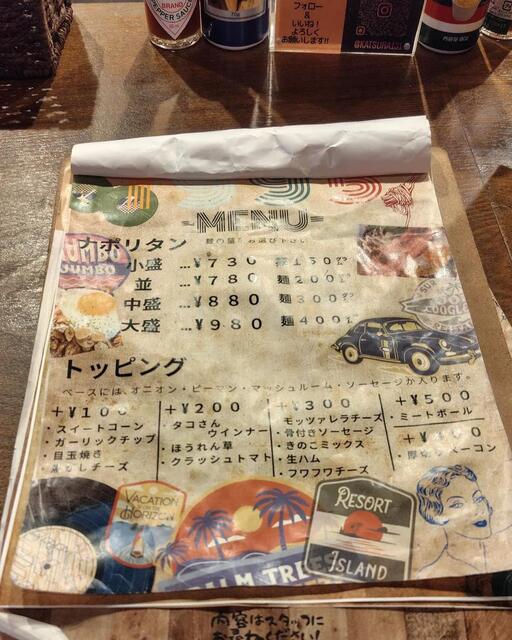 TABASCO
PEPPER SAUCE
フォロー
&
いいね!
よろしく
お願いします!!
MENU
ナポリタン 麺の量をお選び下さい
JUMBO
小盛 ...¥730 麺150㌘
並 ...¥780 麺200㌘
中盛 ...¥880 麺300㌘
大盛 ...¥980 麺400㌘
トッピング
ベースには、オニオン・ピーマン・マッシュルーム・ソーセージが入ります。
+¥100
・スイートコーン
・ガーリックチップ
・目玉焼き
チーズ
+¥200
・タコさん
ウインナー
・ほうれん草
・クラッシュトマト
+¥300
モッツァレラチーズ
・骨付きソーセージ
・きのこミックス
・生ハム
・フワフワチーズ
+¥500
・ミートボール
ベーコン
VACATION
HORIZON
PALM TREE
RESORT
ISLAND
内容はスタッフに
お尋ねください!